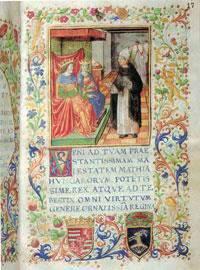 17
VENI AD TVAM PRAE
STANTISSIMAM MA
IESTATEM MATHIA
HVNGARORVM POTETIS
SIME REX ATQVE AD TE
BEATRIX OMNI VIRTVTVM
GENERE ORNATISSIA REGINA